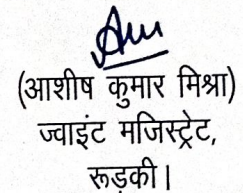 (आशीष कुमार मिश्रा)
ज्वाइंट मजिस्ट्रेट,
रूड़की।